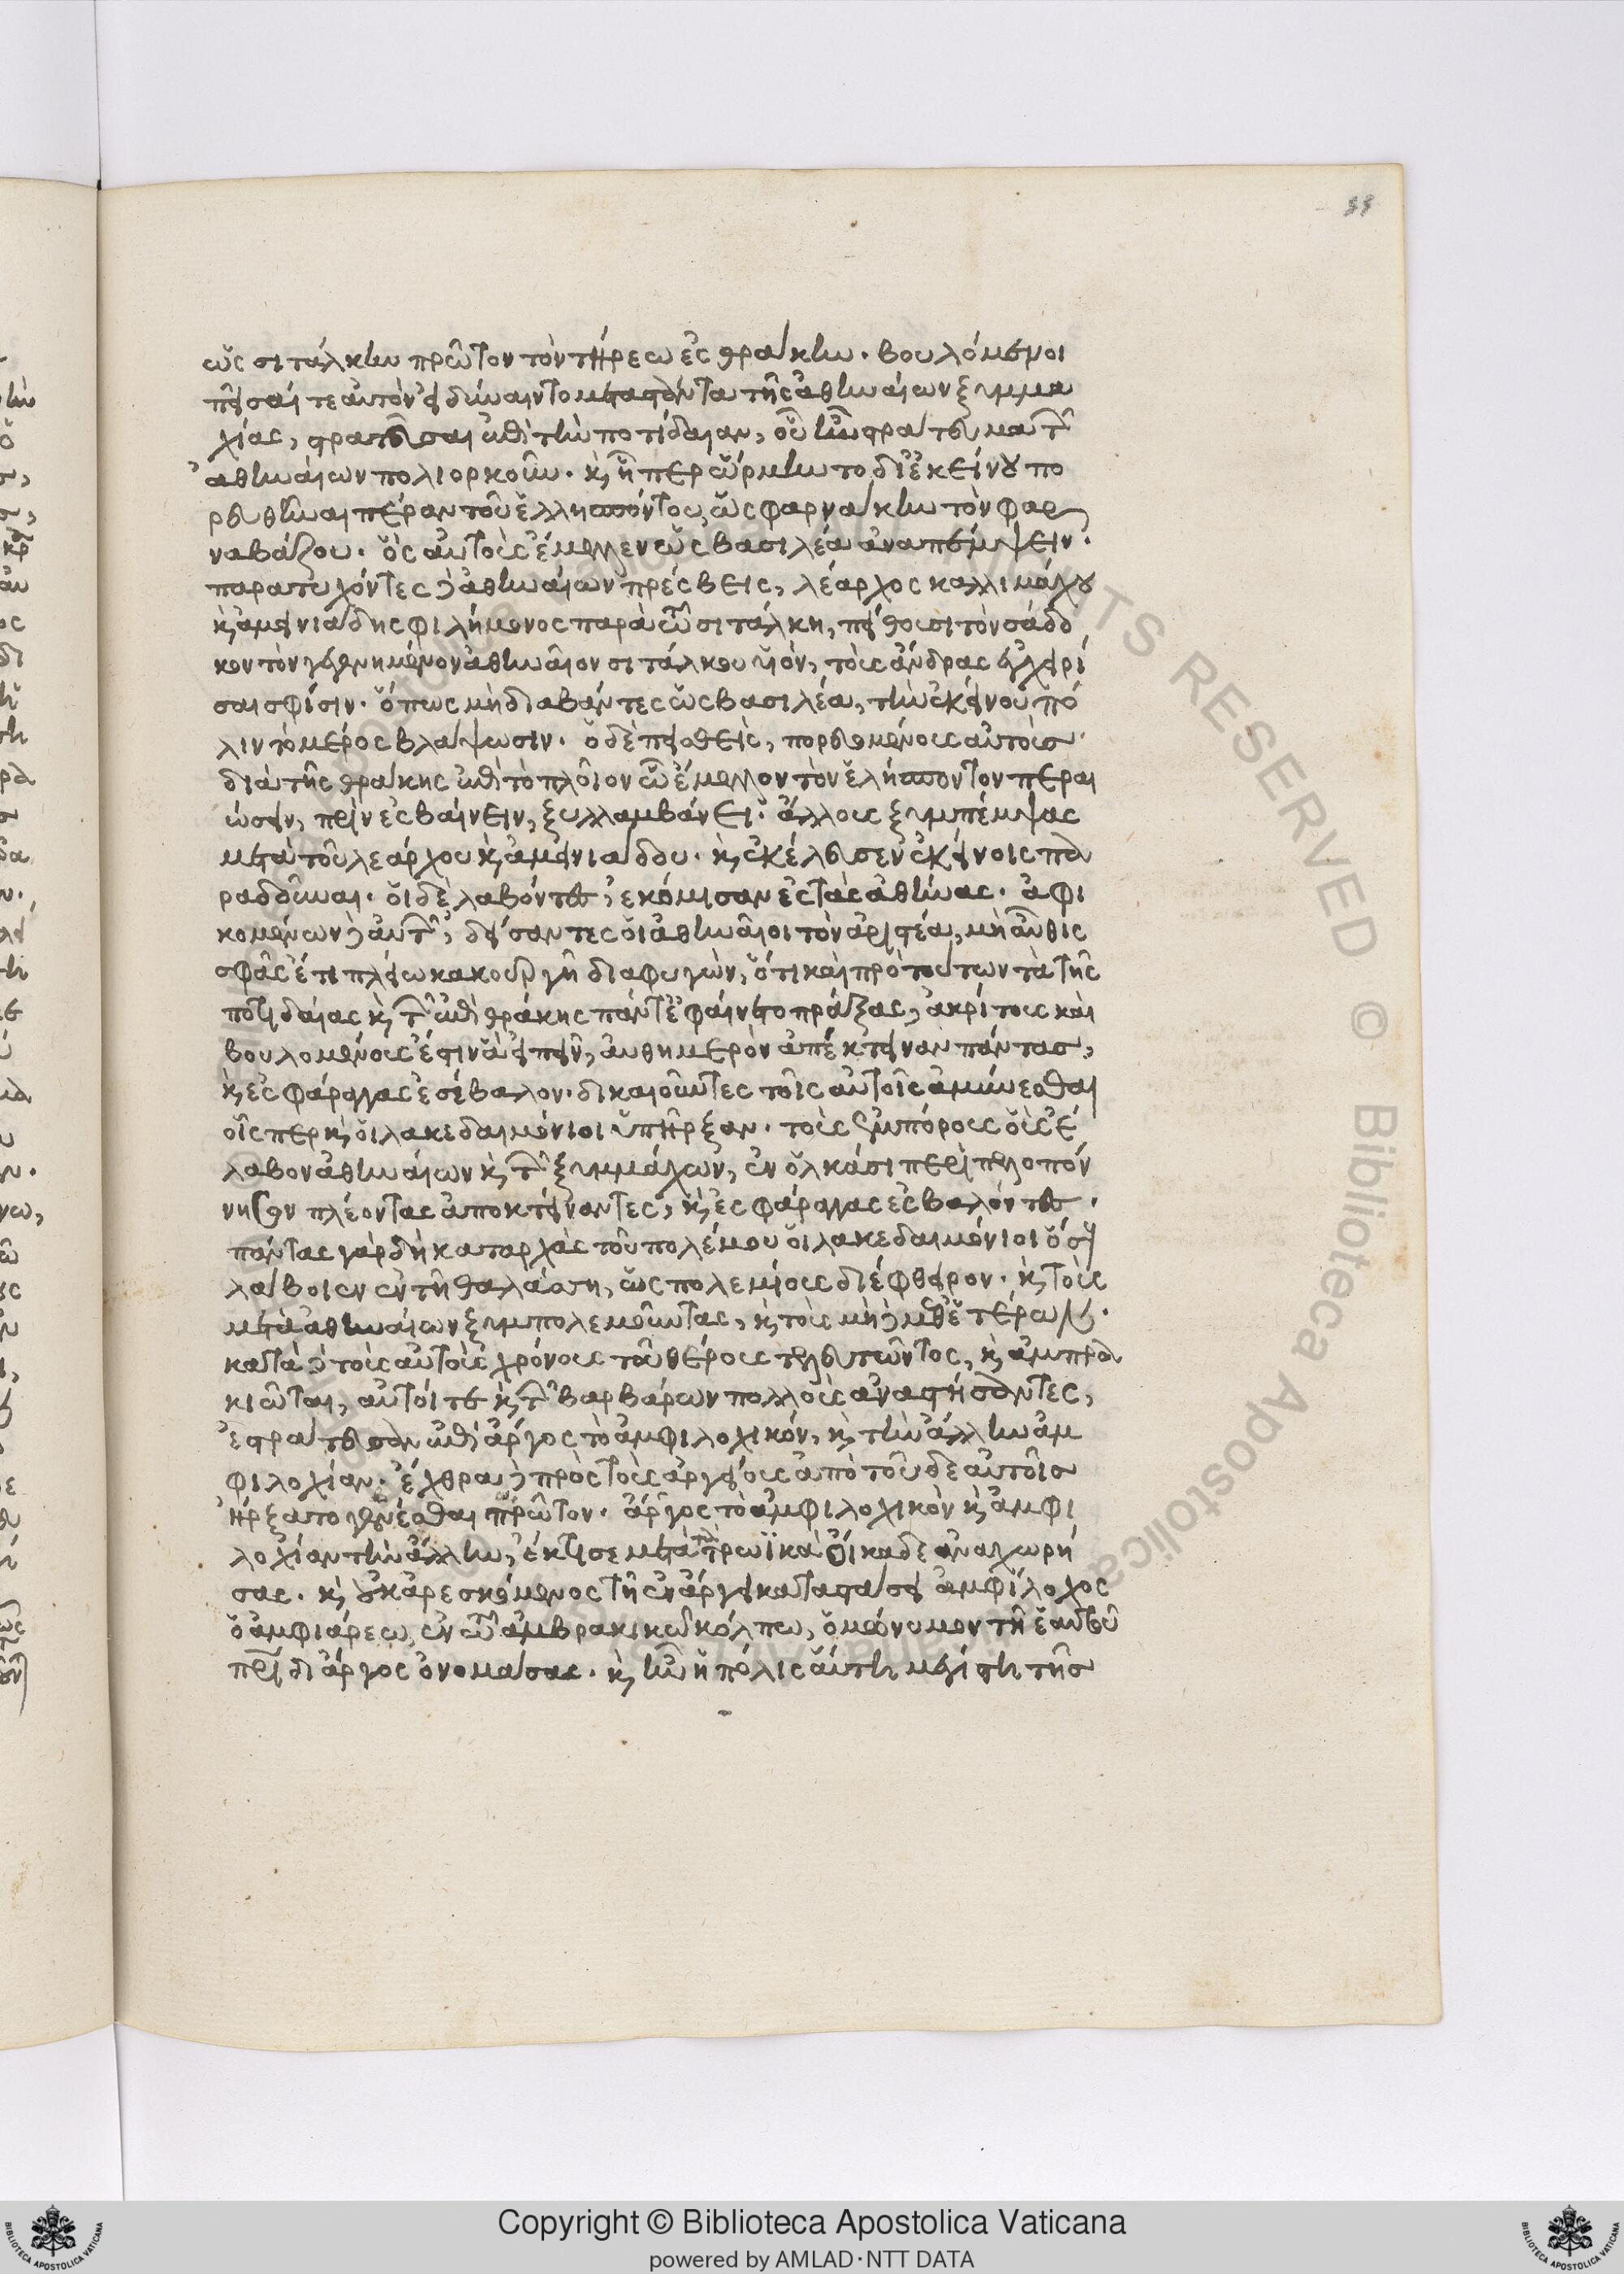 33
ὡς σιτάλκην πρῶτον τὸν τήρεω ἐς θράκην. βουλόμενοι
πεῖσαί τε αὐτὸν εἰ δύναιντο μεταστάντα τῆς ἀθηναίων ξυμμα
χίας, στρατεῦσαι ἐπὶ τὴν ποτίδαιαν, οὗ ἦν στράτευμα τῶν
ἀθηναίων πολιορκοῦν. καὶ ᾗπερ ὥρμηντο δι' ἐκείνου πο
ρευθῆναι πέραν τοῦ ἑλλησπόντου, ὡς φαρνάκην τὸν φαρ
ναβάζου. ὃς αὐτοὺς ἔμελλεν ὡς βασιλέα ἀναπέμψειν.
παρατυχόντες δὲ ἀθηναίων πρέσβεις, λέαρχος καλλιμάχου
καὶ ἀμεινιάδης φιλήμονος παρὰ τῷ σιτάλκῃ, πείθουσι τὸν σάδο
κον τὸν γεγενημένον ἀθηναῖον σιτάλκου υἱόν, τοὺς ἄνδρας ἐγχειρί
σαι σφίσιν. ὅπως μὴ διαβάντες ὡς βασιλέα, τὴν ἐκείνου πό
λιν τὸ μέρος βλάψωσιν. ὁ δὲ πεισθεὶς, πορευομένους αὐτοὺς
διὰ τῆς θράκης ἐπὶ τὸ πλοῖον ᾧ ἔμελλον τὸν ἑλήσποντον περαι
ώσειν, πρὶν ἐσβαίνειν, ξυλλαμβάνει. ἄλλους ξυμπέμψας
μετὰ τοῦ λεάρχου καὶ ἀμεινιάδου. καὶ ἐκέλευσεν ἐκείνοις πα
ραδοῦναι. οἱ δὲ λαβόντες, ἐκόμισαν ἐς τὰς ἀθήνας. ἀφι
κομένων δὲ αὐτῶν, δείσαντες οἱ ἀθηναῖοι τὸν ἀριστέα, μὴ αὖθις
σφᾶς ἔτι πλείω κακουργῇ διαφυγὼν, ὅτι καὶ πρὸ τούτων τὰ τῆς
ποτιδαίας καὶ τῶν ἐπὶ θράκης πάντ' ἐφαίνετο πράξας, ἀκρίτους καὶ
βουλομένους ἔστιν ἃ εἰπεῖν, αὐθημερὸν ἀπέκτειναν πάντας,
καὶ ἐς φάραγγας ἐσέβαλον. δικαιοῦντες τοῖς αὐτοῖς ἀμύνεσθαι
οἷσπερ καὶ οἱ λακεδαιμόνιοι ὑπῆρξαν. τοὺς ἐμπόρους οὓς ἔ
λαβον ἀθηναίων καὶ τῶν ξυμμάχων, ἐν ὁλκάσι περὶ πελοπόν
νησον πλέοντας ἀποκτείναντες, καὶ ἐς φάραγγας ἐσβαλόντες.
πάντας γὰρ δὴ καταρχὰς τοῦ πολέμου οἱ λακεδαιμόνιοι ὅσους
λάβοιεν ἐν τῇ θαλάσσῃ, ὡς πολεμίους διέφθειρον. καὶ τοὺς
μετὰ ἀθηναίων ξυμπολεμοῦντας, καὶ τοὺς μὴ δὲ μεθ' ἑτέρων.
κατὰ δὲ τοὺς αὐτοὺς χρόνους τοῦ θέρους τελευτῶντος, καὶ ἀμπρα
κιῶται, αὐτοί τε καὶ τῶν βαρβάρων πολλοὺς ἀναστήσαντες,
ἐστράτευσαν ἐπὶ ἄργος τὸ ἀμφιλοχικόν, καὶ τὴν ἄλλην ἀμ
φιλοχίαν. ἔχθρα δὲ πρὸς τοὺς ἀργείους ἀπὸ τοῦδε αὐτοῖς
ἤρξατο γενέσθαι πρῶτον. ἄργος τὸ ἀμφιλοχικὸν καὶ ἀμφι
λοχίαν τὴν ἄλλην, ἔκτισε μετὰ τὰ τρωϊκὰ οἴκαδε ἀναχωρή
σας. καὶ οὐκ ἀρεσκόμενος τῇ ἐν ἄργει καταστάσει ἀμφίλοχος
ὁ ἀμφιάρεω, ἐν τῷ ἀμβρακικῷ κόλπω, ὁμώνυμον τῇ ἑαυτοῦ
πατρίδι ἄργος ὀνομάσας. καὶ ἦν ἡ πόλις αὕτη μεγίστη τῆς
Copyright © Biblioteca Apostolica Vaticana
powered by AMLAD·NTT DATA